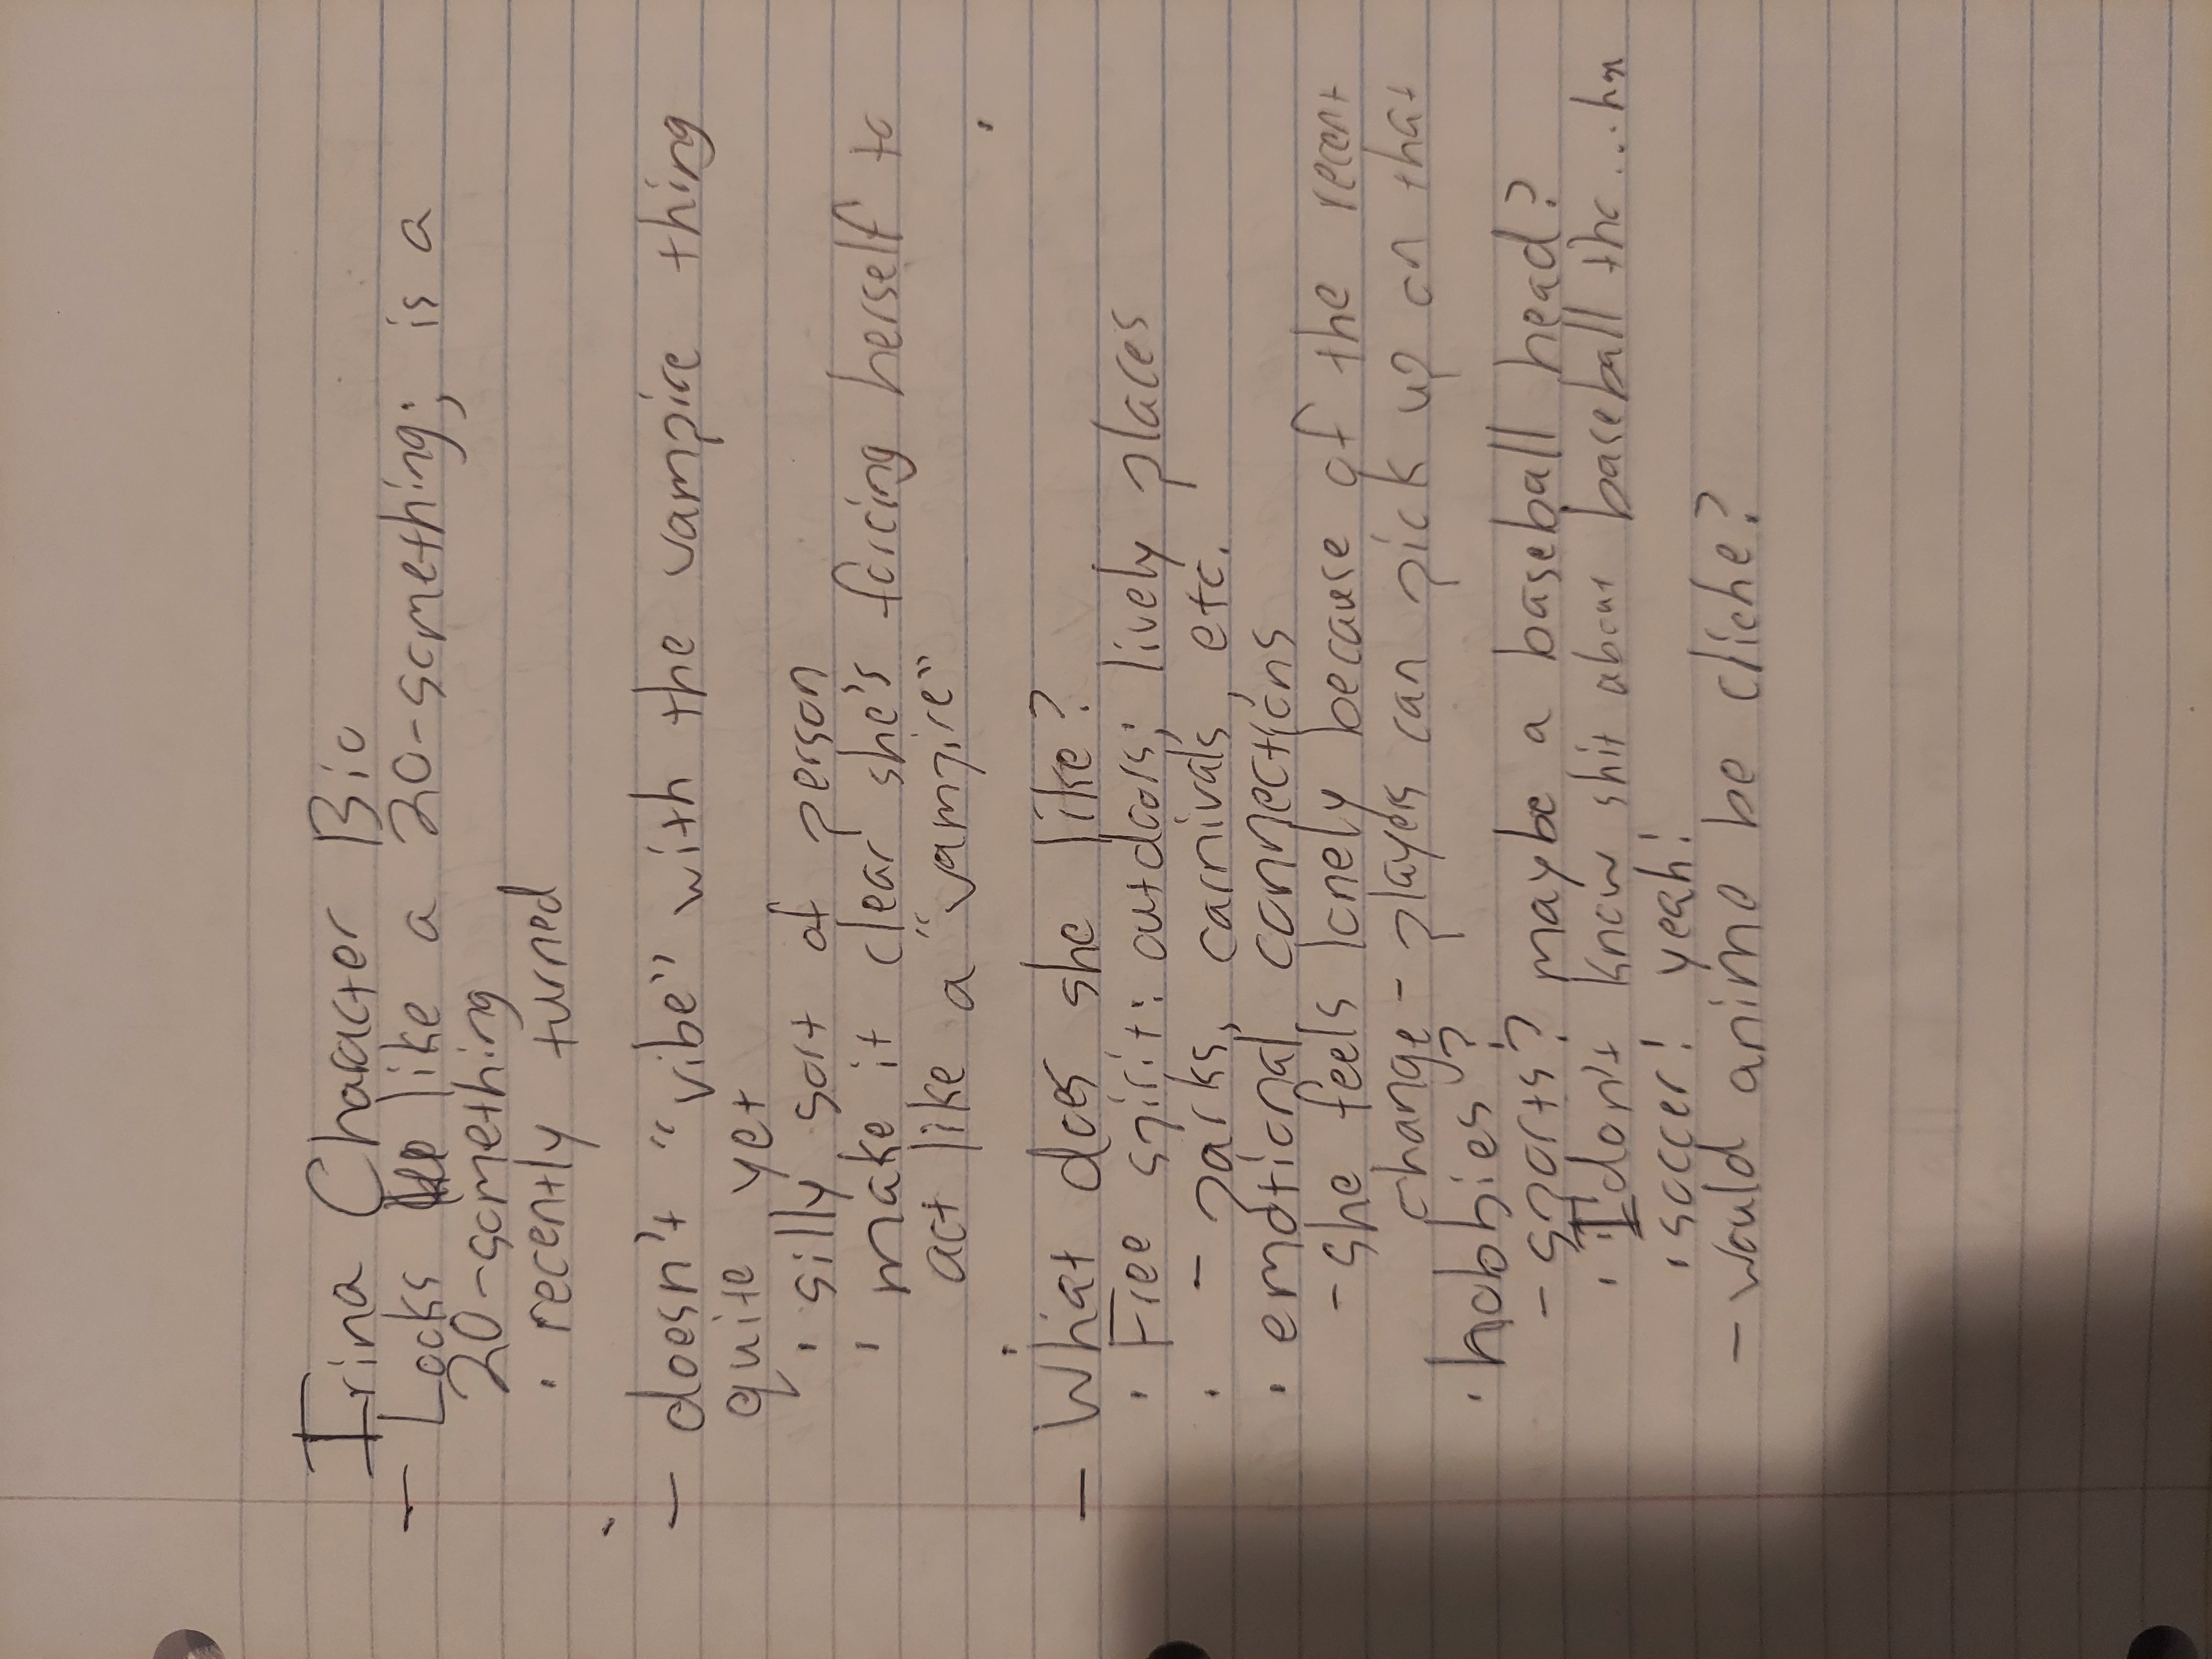 Irina Character Bio
- Looks like a 20-something; is a
20-something
· recently turned
- doesn't "vibe" with the vampire thing
quite yet
· silly sort of person
· make it clear she's forcing herself to
act like a "vampire"
- What does she like?
· Free spirit: outdoors; lively places
· - parks, carnivals, etc.
· emotional connections
- she feels lonely because of the recent
change - players can pick up on that
· hobbies?
- sports? maybe a baseball head?
· I don't know shit about baseball tho...
· soccer! yeah!
- would anime be cliche?